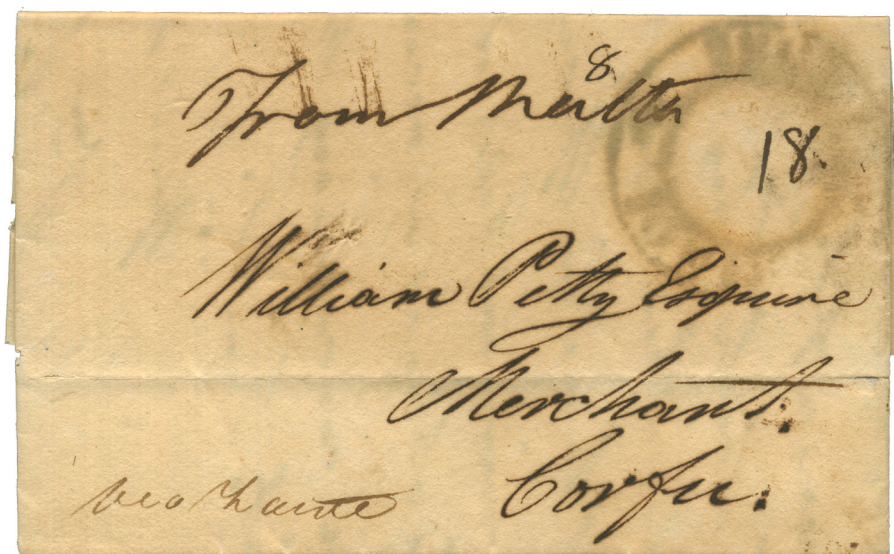 8
From Malta
18.
William Petty Esquire
Merchant.
Corfu.
via Zante